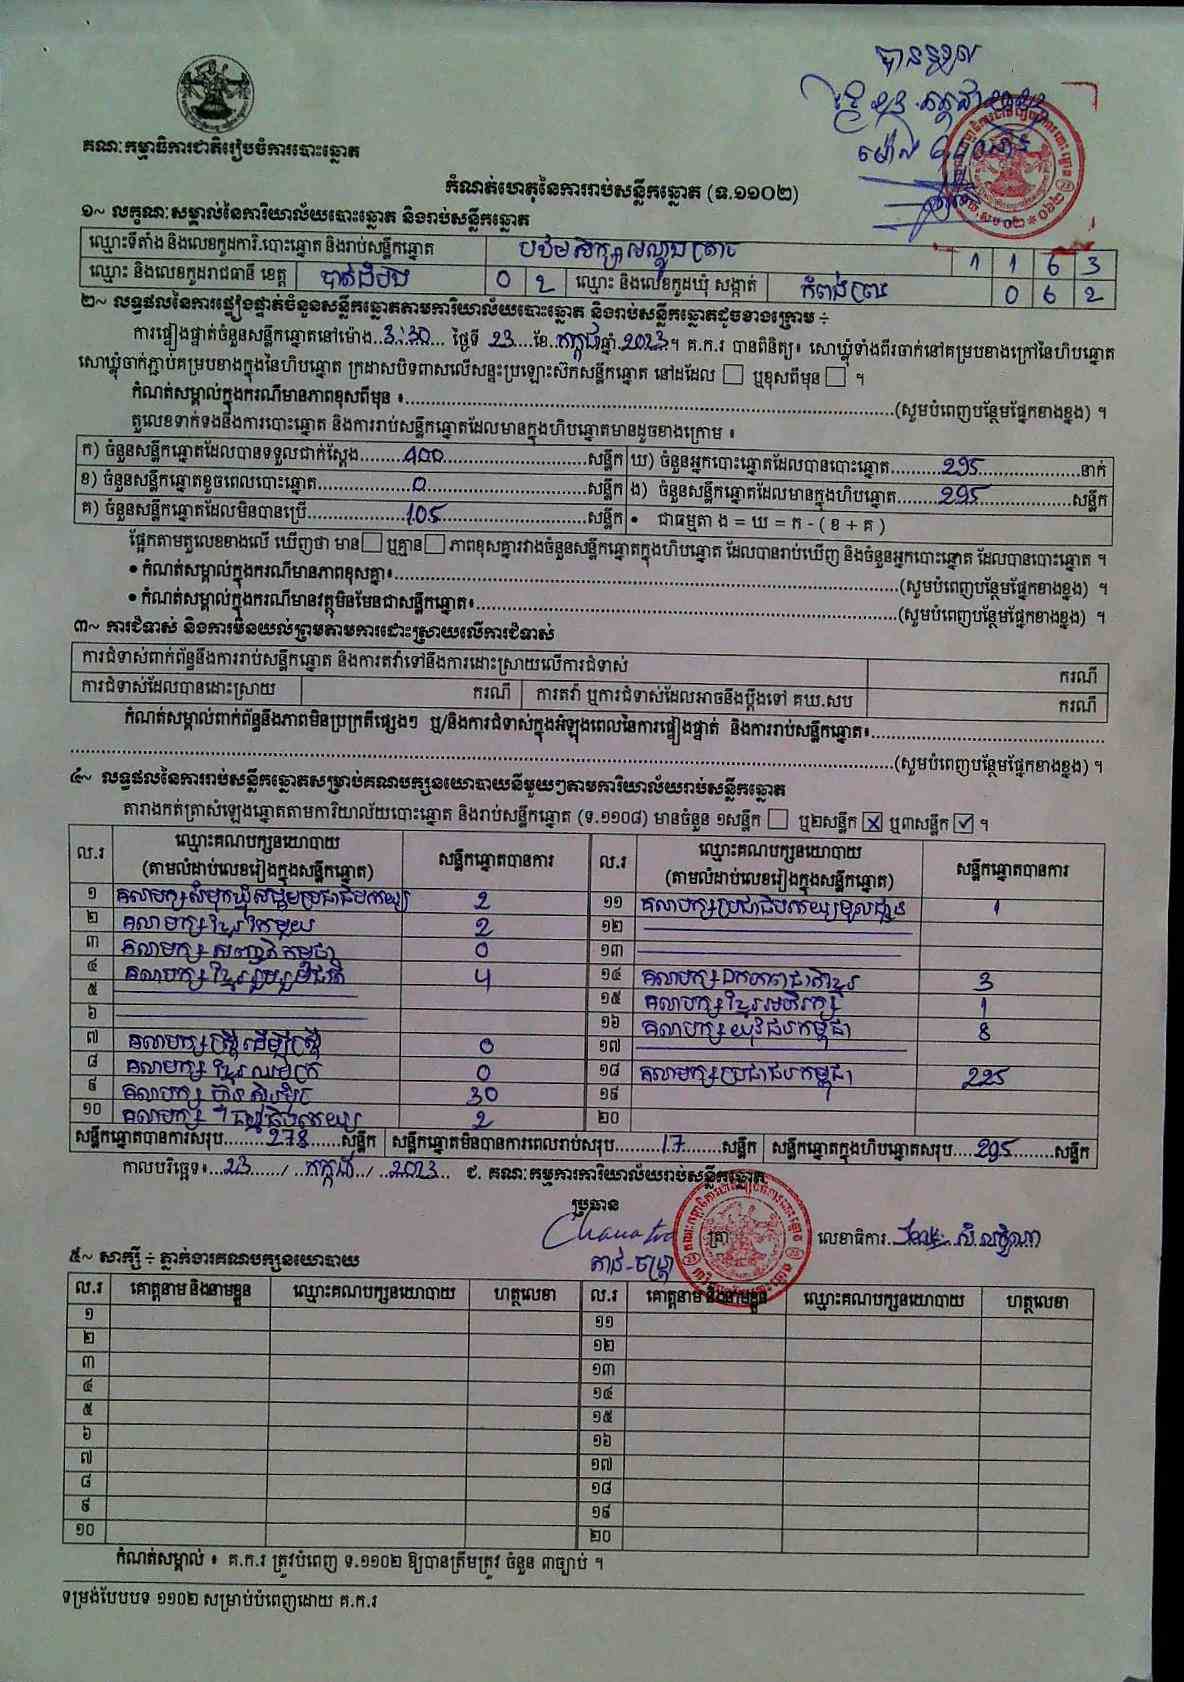 បានទទួល
គណៈកម្មាធិការជាតិរៀបចំការបោះឆ្នោត
កំណត់ហេតុនៃការរាប់សន្លឹកឆ្នោត (ទ.១១០២)
១~ លក្ខណៈសម្គាល់នៃការិយាល័យបោះឆ្នោត និងរាប់សន្លឹកឆ្នោត
ឈ្មោះទីតាំង និងលេខកូដការិ.បោះឆ្នោត និងរាប់សន្លឹកឆ្នោត បឋមសិក្សា 1 1 6 3
ឈ្មោះ និងលេខកូដរាជធានី ខេត្ត បាត់ដំបង 0 2 ឈ្មោះ និងលេខកូដឃុំ សង្កាត់ កំពង់ព្រះ 0 6 2
២~ លទ្ធផលនៃការផ្ទៀងផ្ទាត់ចំនួនសន្លឹកឆ្នោតតាមការិយាល័យបោះឆ្នោត និងរាប់សន្លឹកឆ្នោតដូចខាងក្រោម ÷
ការផ្ទៀងផ្ទាត់ចំនួនសន្លឹកឆ្នោតនៅម៉ោង..3:30... ថ្ងៃទី 23....ខែ.កក្កដា.ឆ្នាំ.2023.។ គ.ក.រ បានពិនិត្យ៖ សោឃ្លុំទាំងពីរចាក់នៅគម្របខាងក្រៅនៃហិបឆ្នោត
សោឃ្លុំចាក់ភ្ជាប់គម្របខាងក្នុងនៃហិបឆ្នោត ក្រដាសបិទពាសលើសន្ទះប្រឡោះស៊កសន្លឹកឆ្នោត នៅដដែល ☐ ឬខុសពីមុន ☐ ។
កំណត់សម្គាល់ក្នុងករណីមានភាពខុសពីមុន ៖....(សូមបំពេញបន្ថែមផ្នែកខាងខ្នង) ។
តួលេខទាក់ទងនឹងការបោះឆ្នោត និងការរាប់សន្លឹកឆ្នោតដែលមានក្នុងហិបឆ្នោតមានដូចខាងក្រោម ៖
ក) ចំនួនសន្លឹកឆ្នោតដែលបានទទួលជាក់ស្ដែង.......400.......សន្លឹក ឃ) ចំនួនអ្នកបោះឆ្នោតដែលបានបោះឆ្នោត.......295.......នាក់
ខ) ចំនួនសន្លឹកឆ្នោតខូចពេលបោះឆ្នោត.......0.......សន្លឹក ង) ចំនួនសន្លឹកឆ្នោតដែលមានក្នុងហិបឆ្នោត.......295.......សន្លឹក
គ) ចំនួនសន្លឹកឆ្នោតដែលមិនបានប្រើ.......105.......សន្លឹក • ជាធម្មតា ង = ឃ = ក - ( ខ + គ )
ផ្អែកតាមតួលេខខាងលើ ឃើញថា មាន ☐ ឬគ្មាន ☐ ភាពខុសគ្នារវាងចំនួនសន្លឹកឆ្នោតក្នុងហិបឆ្នោត ដែលបានរាប់ឃើញ និងចំនួនអ្នកបោះឆ្នោត ដែលបានបោះឆ្នោត ។
• កំណត់សម្គាល់ក្នុងករណីមានភាពខុសគ្នា៖....(សូមបំពេញបន្ថែមផ្នែកខាងខ្នង) ។
• កំណត់សម្គាល់ក្នុងករណីមានវត្ថុមិនមែនជាសន្លឹកឆ្នោត៖....(សូមបំពេញបន្ថែមផ្នែកខាងខ្នង) ។
៣~ ការជំទាស់ និងការមិនយល់ព្រមតាមការដោះស្រាយលើការជំទាស់
ការជំទាស់ពាក់ព័ន្ធនឹងការរាប់សន្លឹកឆ្នោត និងការតវ៉ាទៅនឹងការដោះស្រាយលើការជំទាស់ ករណី
ការជំទាស់ដែលបានដោះស្រាយ ករណី ការតវ៉ា ឬការជំទាស់ដែលអាចនឹងប្ដឹងទៅ គឃ.សប ករណី
កំណត់សម្គាល់ពាក់ព័ន្ធនឹងភាពមិនប្រក្រតីផ្សេងៗ ឬ/និងការជំទាស់ក្នុងអំឡុងពេលនៃការផ្ទៀងផ្ទាត់ និងការរាប់សន្លឹកឆ្នោត៖....
....(សូមបំពេញបន្ថែមផ្នែកខាងខ្នង) ។
៤~ លទ្ធផលនៃការរាប់សន្លឹកឆ្នោតសម្រាប់គណបក្សនយោបាយនីមួយៗតាមការិយាល័យរាប់សន្លឹកឆ្នោត
តារាងកត់ត្រាសំឡេងឆ្នោតតាមការិយាល័យបោះឆ្នោត និងរាប់សន្លឹកឆ្នោត (ទ.១១០៨) មានចំនួន ១សន្លឹក ☐ ឬ២សន្លឹក ☒ ឬ៣សន្លឹក ☑ ។
ល.រ ឈ្មោះគណបក្សនយោបាយ (តាមលំដាប់លេខរៀងក្នុងសន្លឹកឆ្នោត) សន្លឹកឆ្នោតបានការ ល.រ ឈ្មោះគណបក្សនយោបាយ (តាមលំដាប់លេខរៀងក្នុងសន្លឹកឆ្នោត) សន្លឹកឆ្នោតបានការ
១ គណបក្សសំបុកឃ្មុំសង្គមប្រជាធិបតេយ្យ 2 ១១ គណបក្សប្រជាធិបតេយ្យមូលដ្ឋាន 1
២ គណបក្សខ្មែរតែមួយ 2 ១២
៣ គណបក្សសញ្ជាតិកម្ពុជា 0 ១៣
៤ គណបក្សខ្មែររួបរួមជាតិ 4 ១៤ គណបក្សឯកភាពជាតិខ្មែរ 3
៥ ១៥ គណបក្សខ្មែរអភិរក្ស 1
៦ ១៦ គណបក្សយុវជនកម្ពុជា 8
៧ គណបក្សស្ត្រីដើម្បីស្ត្រី 0 ១៧
៨ គណបក្សខ្មែរឈប់ក្រ 0 ១៨ គណបក្សប្រជាជនកម្ពុជា 225
៩ គណបក្សហ៊្វុនស៊ិនប៉ិច 30 ១៩
១០ គណបក្សធម្មាធិបតេយ្យ 2 ២០
សន្លឹកឆ្នោតបានការសរុប.......278.......សន្លឹក សន្លឹកឆ្នោតមិនបានការពេលរាប់សរុប.......17.......សន្លឹក សន្លឹកឆ្នោតក្នុងហិបឆ្នោតសរុប....295.......សន្លឹក
កាលបរិច្ឆេទ៖...23...../..កក្កដា../...2023... ជ. គណៈកម្មការការិយាល័យរាប់សន្លឹកឆ្នោត
ប្រធាន
ត្រា លេខាធិការ
៥~ សាក្សី ÷ ភ្នាក់ងារគណបក្សនយោបាយ
ល.រ គោត្តនាម និងនាមខ្លួន ឈ្មោះគណបក្សនយោបាយ ហត្ថលេខា ល.រ គោត្តនាម និងនាមខ្លួន ឈ្មោះគណបក្សនយោបាយ ហត្ថលេខា
១ ១១
២ ១២
៣ ១៣
៤ ១៤
៥ ១៥
៦ ១៦
៧ ១៧
៨ ១៨
៩ ១៩
១០ ២០
កំណត់សម្គាល់ ៖ គ.ក.រ ត្រូវបំពេញ ទ.១១០២ ឱ្យបានត្រឹមត្រូវ ចំនួន ៣ច្បាប់ ។
ទម្រង់បែបបទ ១១០២ សម្រាប់បំពេញដោយ គ.ក.រ